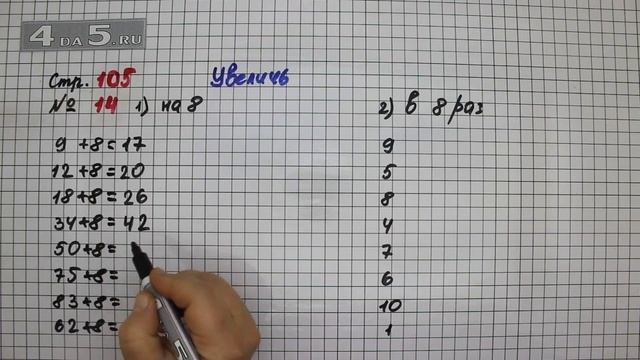 4DA5.RU
Стр. 105 Увеличь
№ 14 1) на 8
9 +8=17
12+8=20
18+8=26
34+8=42
50+8=
75+8=
83+8=
62+8=
2) в 8 раз
9
5
8
4
7
6
10
1